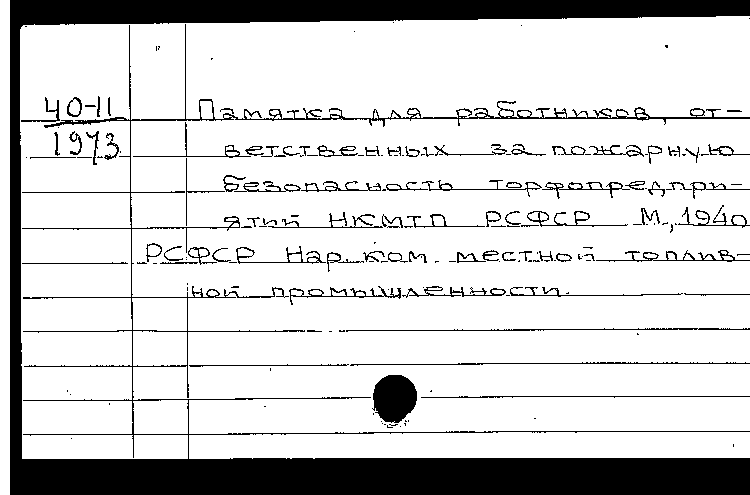 40-11
1973
Памятка для работников, от-
ветственных за пожарную
безопасность торфопредпри-
ятий НКМТП РСФСР М., 1940
РСФСР Нар. ком. местной топлив-
ной промышленности.